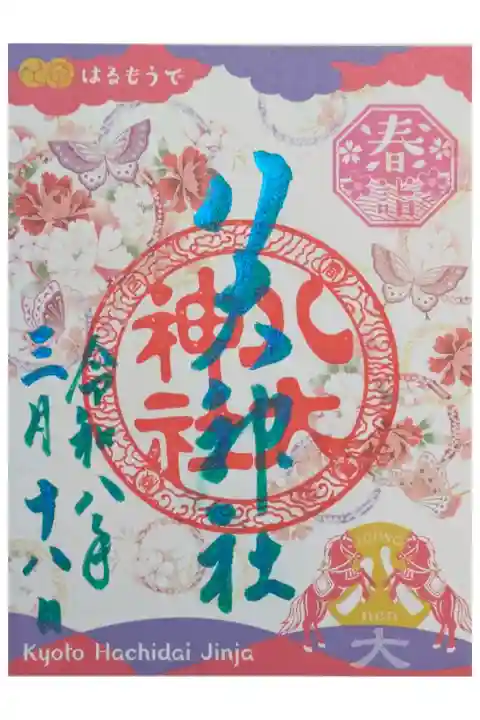 はるもうで
春詣
八大神社
八大
神社
令和八年
三月十八日
八
大
Kyoto Hachidai Jinja